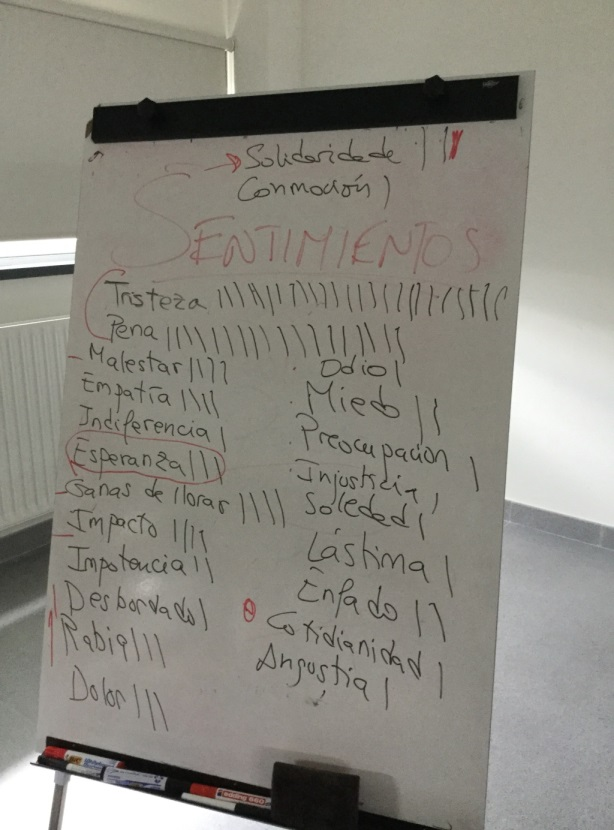 Solidaridade
Conmoción
SENTIMIENTOS
Tristeza
Pena
Malestar
Empatía
Indiferencia
Esperanza
Ganas de llorar
Impacto
Impotencia
Desbordado
Rabia
Dolor
Odio
Miedo
Preocupación
Injusticia
Soledad
Lástima
Enfado
Cotidianidad
Angustia